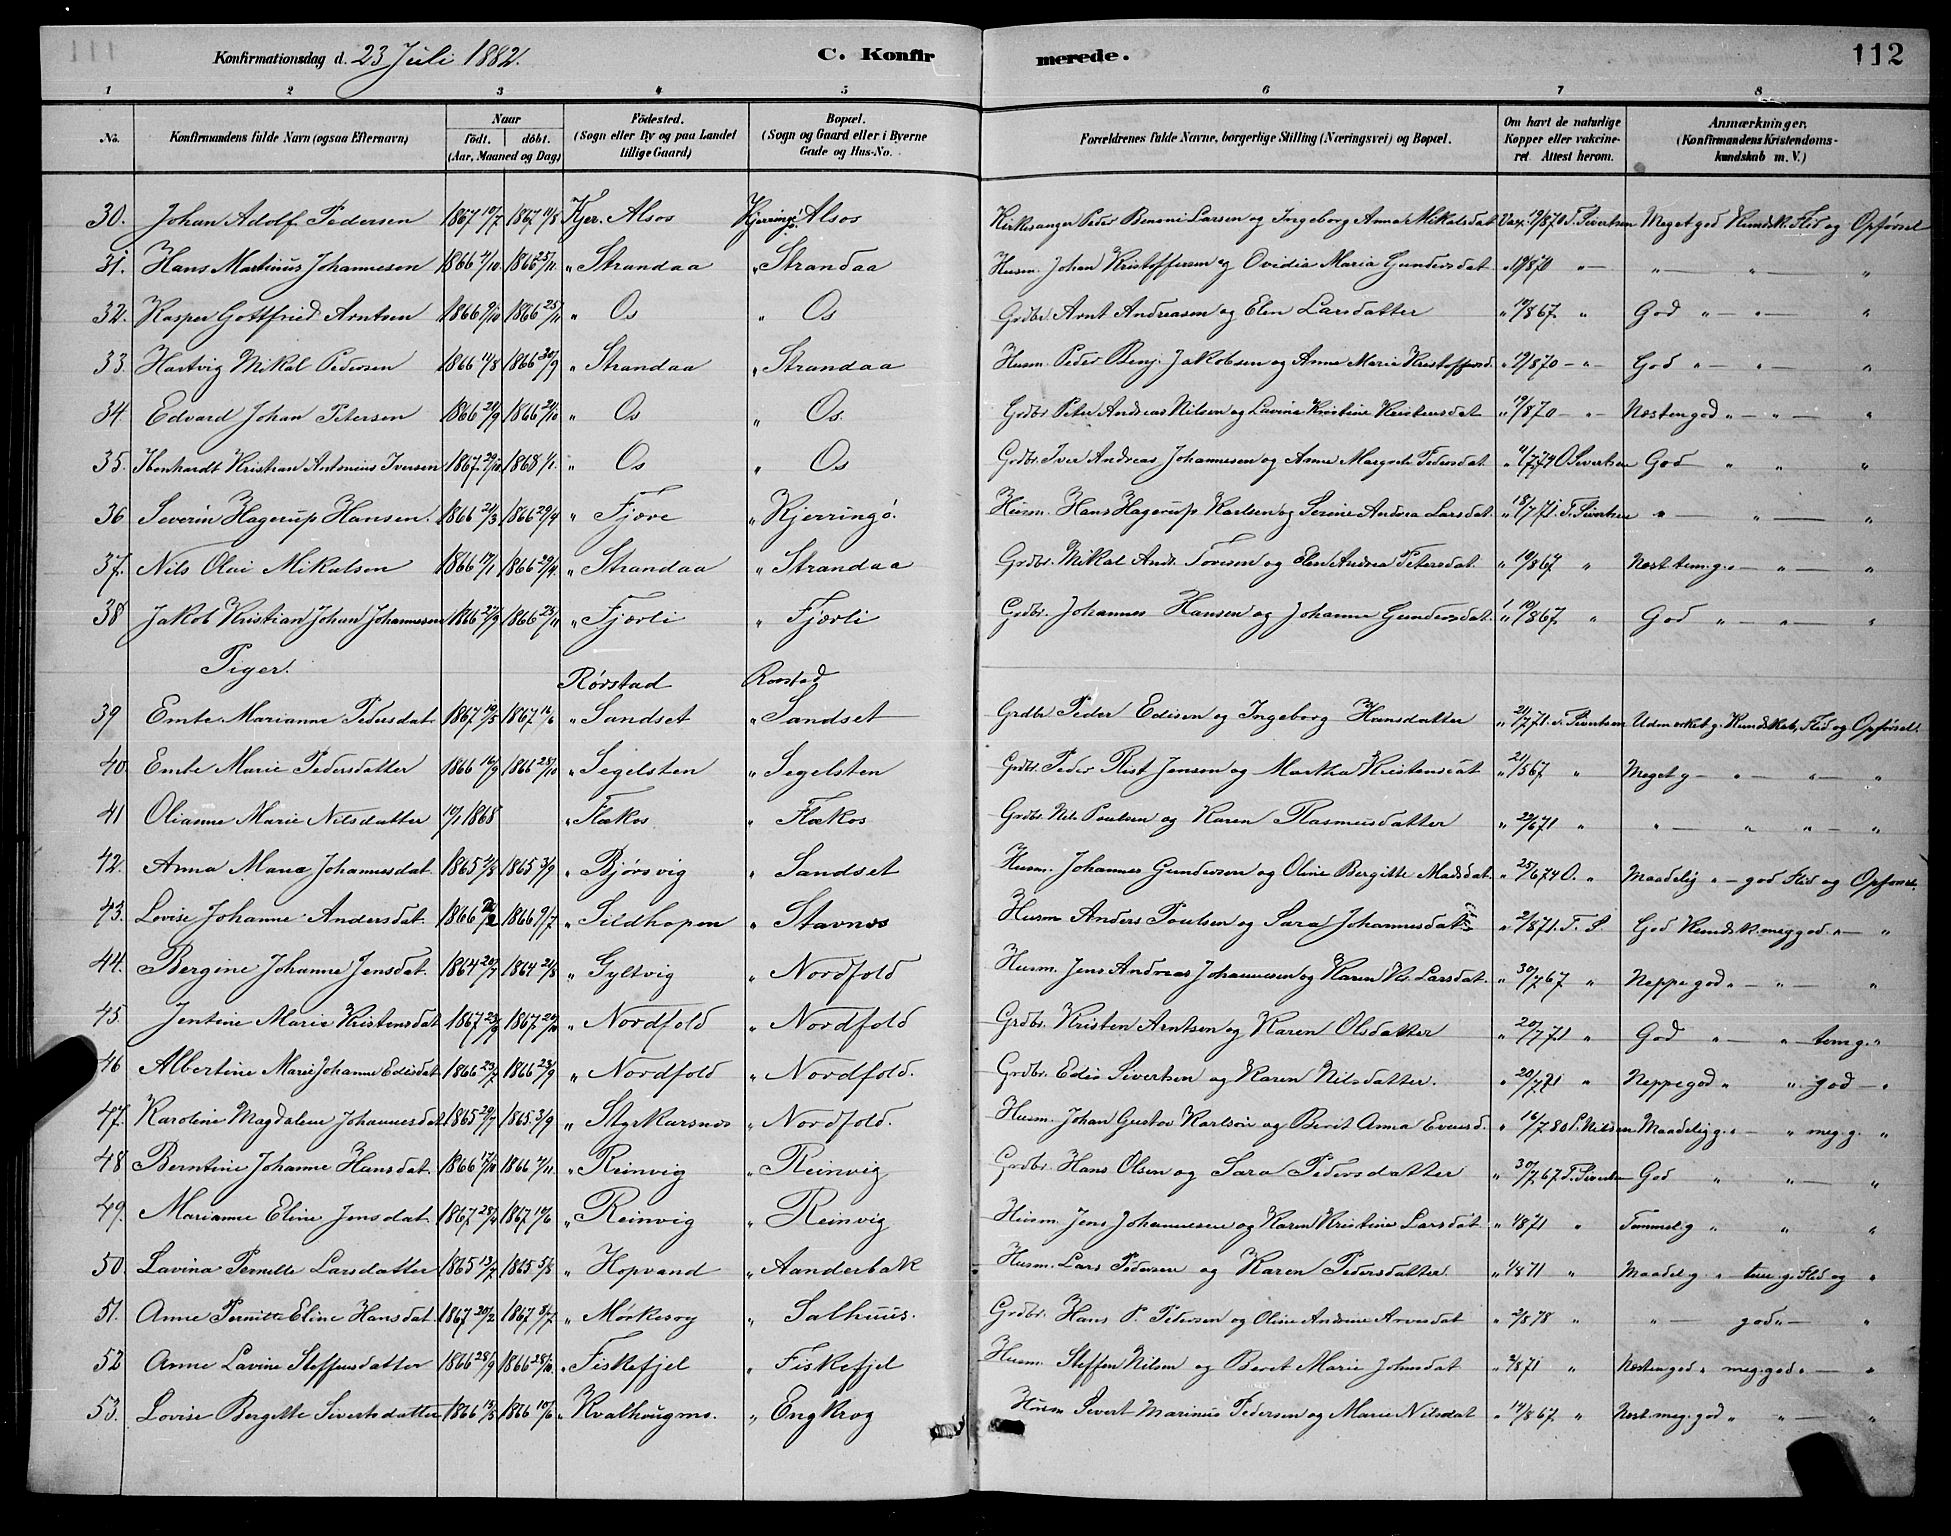 Konfirmationsdag d. 23 Juli 1882. C. Konfirmerede. 112
1 2 3 4 5 6 7 8
No. Konfirmandens fulde Navn (ogsaa Efternavn) Naar födt. döbt. (Aar, Maaned og Dag) Födested. (Sogn eller By og paa Landet tillige Gaard) Bopæl. (Sogn og Gaard eller i Byerne Gade og Hus-No. Forældrenes fulde Navne, borgerlige Stilling (Næringsvei) og Bopæl. Om havt de naturlige Kopper eller vakcineret Attest herom. Anmærkninger. (Konfirmandens Kristendomskundskab m. V.)
30. Johan Adolf Pedersen 1867 10/7 1867 11/8 Kjer. Alsos Kjerringö Alsos Kirkesanger Peder Benoni Larsen og Ingeborg Anna Mikalsdat Vax. 19/870 T. Sivertsen Meget god Kundsk. Flid og Opförsel
31. Hans Martinus Johannesen 1866 4/10 1866 25/11 " Strandaa " Strandaa Husm. Johan Kristoffersen og Ovidia Maria Gundersdat " 19/870 " — " — " — "
32. Kasper Gottfried Arntsen 1866 9/10 1866 25/11 " Os " Os Grdbr. Arnt Andreasen og Elen Larsdatter " 19/867 " God " — " — "
33. Hartvig Mikal Pedersen 1866 11/8 1866 30/9 " Strandaa " Strandaa Husm. Peder Benj. Jakobsen og Anne Marie Kristoffersd. " 19/870 — " — God " — " — "
34. Edvard Johan Petersen 1866 28/9 1866 21/10 " Os " Os. Grdbr. Peter Andreas Nilsen og Lavina Kristine Kristensdat " 19/870 — " Næsten god " — " — "
35. Ibenhardt Kristian Antonius Iversen 1867 29/10 1868 1/1. " Os " Os Grdbr. Iver Andreas Johannesen og Anne Margrete Pedersdat " 11/774 O Sivertsen God " " "
36. Severin Hagerup Hansen. 1866 21/3 1866 29/4 " Fjære " Kjerringö. Husm. Hans Hagerup Karlsen og Serine Andrea Larsdat " 18/771. T. Sivertsen " — " — "
37. Nils Olai Mikalsen 1866 17/1 1866 29/4. " Strandaa " Strandaa Grdbr. Mikal Andr. Tovesen og Elen Andrea Petersdat " 19/867 " Næst tem. g. " — " — "
38 Jakob Kristian Johan Johannesen 1866 27/9 1866 25/11 " Fjærli " Fjærli Grdbr. Johannes Hansen og Johanne Gundersdat " 19/867. " God " — " — "
Piger. Rörstad Rörstad
39 Emte Marianne Pedersdat 1867 19/5 1867 16/6 " Sandset " Sandset Grdbr Peder Edisen og Ingeborg Hansdatter " 21/771. T. Sivertsen Udmærket g. Kundskab, Flid og Opförsel.
40. Emte Marie Pedersdatter 1866 16/9 1866 28/10 " Segelsten " Segelsten Grdbr. Peder Rist Jensen og Martha Kristensdat " 21/567 " Meget g — " — " — "
41 Olianne Marie Nilsdatter 10/1 1868 " Flækos " Flækos Grdbr. Nils Poulsen og Karen Rasmusdatter " 22/671 " " — " " — "
42. Anna Maria Johannesdat. 1865 2/8 1865 3/9 " Björsvig " Sandset Husm. Johannes Gundersen og Oline Bergitte Madsdat. " 25/674 O. " Maadelig " — god Flid og Opförsel.
43. Lovise Johanne Andersdat. 1866 2/2 1866 9/7 " Sildhopen " Stavnæs Husm Anders Poulsen og Sara Johannesdat. " 2/871. T. S God Kundsk. meg god. " — "
44. Bergine Johanne Jensdat. 1864 20/7 1864 21/8 " Gyltvig " Nordfold Husm. Jens Andreas Johannesen og Karen Kr. Larsdat. " 30/767 " Neppe god " — " — "
45. Jentine Marie Kristensdat 1867 23/9 1867 20/10 " Nordfold " Nordfold Grdbr. Kristen Arntsen og Karen Olsdatter " 20/771 " God " — " tem g. "
46 Albertine Marie Johanne Edisdat 1866 23/7 1866 23/9 " Nordfold " Nordfold. Grdbr. Edis Sivertsen og Karen Nilsdatter. " 20/771 " Neppe god " " god — "
47. Karoline Magdalene Johannesdat 1865 29/7 1865. 3/9 " Styrkarsnæs " Nordfold. Husm. Johan Gustav Karlson og Berit Anna Evensd. " 16/780 P. Nilsen Maadelig g. " — " meg. g. "
48 Berntine Johanne Hansdat. 1866 17/10 1866 4/11. " Reinvig " Reinvig Grdbr. Hans Olsen og Sara Pedersdatter " 30/767 T. Sivertsen God " " "
49. Marianne Eline Jensdat 1867 28/4 1867 10/6 " Reinvig " Reinvig Husm. Jens Johannesen og Karen Kristine Larsdat. " 4871 " Temmel. g " " "
50. Lavina Pernille Larsdatter 1865 13/7 1865 5/8 " Hopvand " Aanderbak Husm. Lars Pedersen og Karen Pedersdatter " 4871 " Maadel. g. " tem. g. Flid og "
51. Anne Pernille Eline Hansdat. 1867 20/2 1867 8/7 " Mörkesvg " Salhuus. Grdbr. Hans P. Pedersen og Oline Andrine Arnesdat " 2/878 " " — god " — "
52 Anne Lavine Steffensdatter 1866 28/9 1866 28/10. " Fiskefjel " Fiskefjel Husm. Steffen Nilsen og Beret Marie Johnsdat " 2/871 " Næsten god " meg. god " — "
53. Lovise Bergette Sivertsdatter 1866 13/5 1866 10/6 " Kvalhougms. " Engkrog Husm Sivert Marinus Pedersen og Marie Nilsdat " 14/867 " Næst. meg. god " " — "